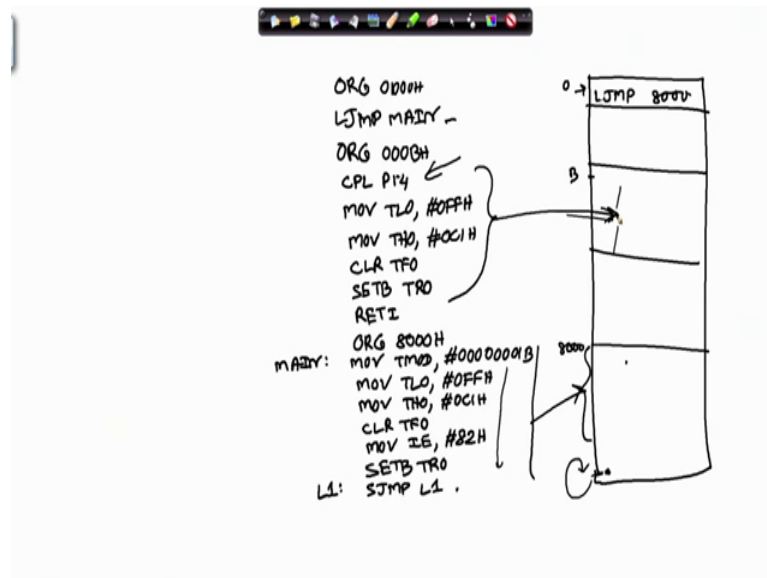 ORG 0000H
LJMP MAIN
ORG 000BH
CPL P1.4
MOV TL0, #0FFH
MOV TH0, #0C1H
CLR TF0
SETB TR0
RETI
ORG 8000H
MAIN: MOV TMOD, #00000001B
MOV TL0, #0FFH
MOV TH0, #0C1H
CLR TF0
MOV IE, #82H
SETB TR0
L1: SJMP L1.
0
LJMP 8000
B
8000